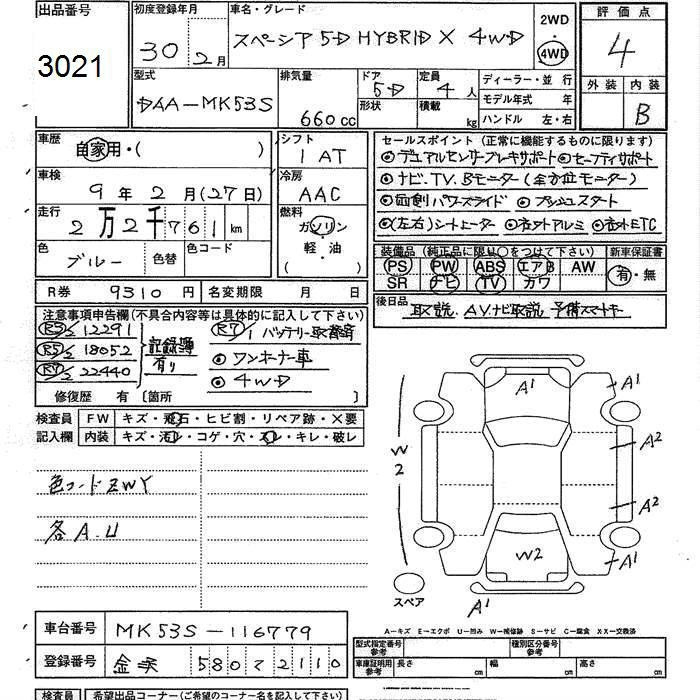 出品番号
3021
初度登録年月
30年2月
車名・グレード
スペーシア 5D HYBRID X 4WD
2WD
4WD
評価点
4
外装 内装
B
型式
DAA-MK53S
排気量
660cc
ドア
5D
形状
定員
4人
積載
kg
ディーラー・並行
モデル年式 年
ハンドル 左・右
車歴
自家用・( )
車検
9年2月(27日)
走行
2万2千761km
色
ブルー
色替
色コード
シフト
1 AT
冷房
AAC
燃料
ガソリン
・
軽・油
( )
R券 9310円
名変期限 月 日
セールスポイント (正常に機能するものに限ります)
◎デュアルセンサーブレーキサポート ◎セーフティサポート
◎ナビ.TV.Bモニター(全方位モニター)
◎両側パワースライド ◎プッシュスタート
◎(左右)シートヒーター ◎社外アルミ ◎社外ETC
装備品 (純正品に限り○をつけて下さい)
新車保証書
PS PW ABS エアB AW
SR ナビ TV カワ
有・無
後日品
取説.AVナビ取説 予備スマートキー
注意事項申告欄(不具合内容等は具体的に記入して下さい)
R3/2 12291
R5/2 18052
R7/2 22440
記録簿
有り
R7/1 バッテリー取替済
◎ワンオーナー車
◎4WD
修復歴 有 〔箇所 〕
検査員
記入欄
FW キズ・飛石・ヒビ割・リペア跡・X要
内装 キズ・汚レ・コゲ・穴・スレ・キレ・破レ
色コードZWY
各A.U
A1
A1
W
2
A2
A2
W2
A1
A1
スペア
A-キズ E-エクボ U-凹み W-補修跡 S-サビ C-腐食 XX-交換済
車台番号 MK53S-116779
登録番号 金沢 580 て 2110
型式指定番号
参考
種別区分番号
参考
車庫証明用
参考
長さ cm
幅 cm
高さ cm
検査員 希望出品コーナー(ご希望のコーナー名を記入下さい)